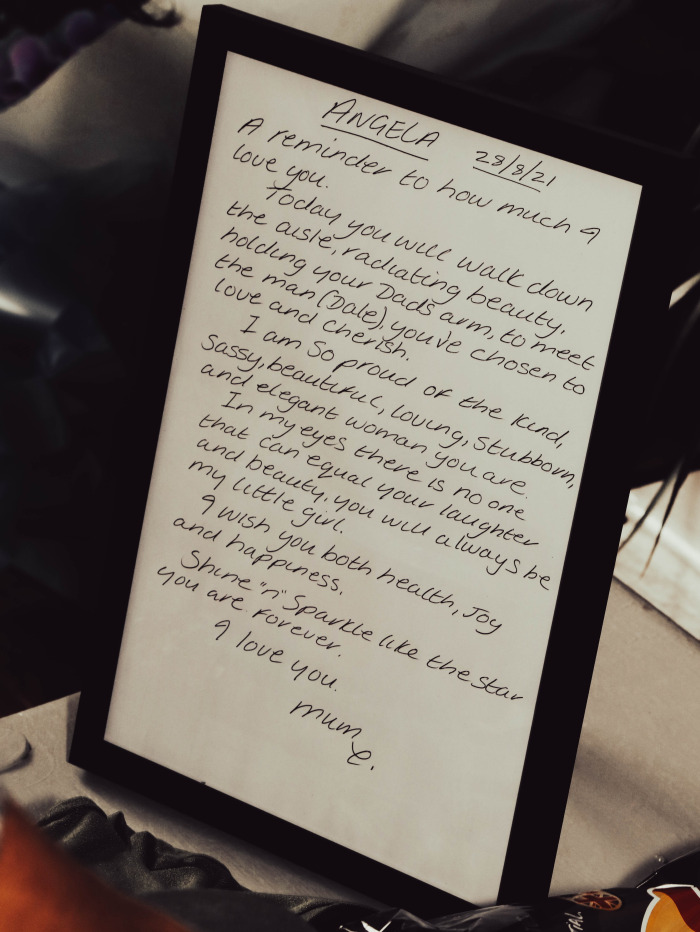 ANGELA 28/8/21
A reminder to how much I
love you.
Today you will walk down
the aisle, radiating beauty,
holding your Dads arm, to meet
the man (Dale), you've chosen to
love and cherish.
I am so proud of the kind,
sassy, beautiful, loving, stubborn,
and elegant woman you are.
In my eyes there is no one
that can equal your laughter
and beauty, you will always be
my little girl.
I wish you both health, Joy
and happiness.
Shine "n" Sparkle like the star
you are forever.
I love you.
mum